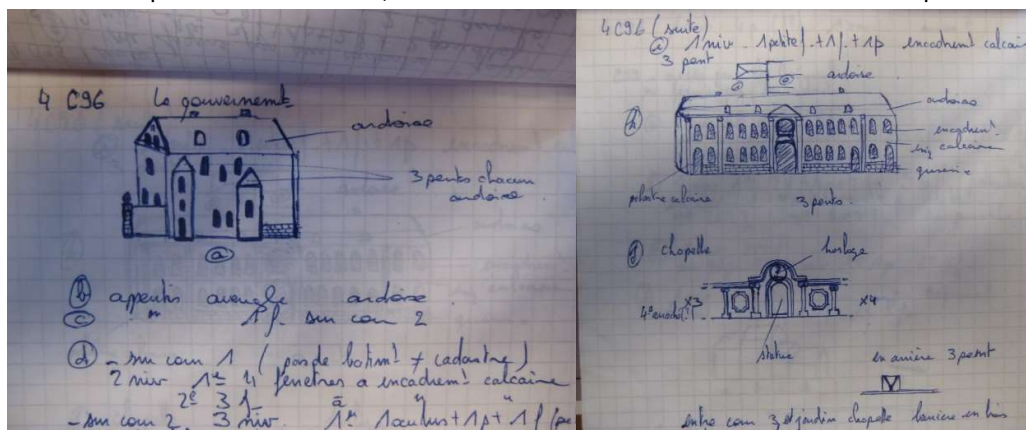 4 C96 Le gouvernemt
ardoise
3 pents chacun
ardoise
(a)
(b) appentis aveugle ardoise
(c) " 1 f. sur cour 2
(d) - sur cour 1 (pas de batimt ≠ cadastre)
2 niv 1e 4 fenetres a encadremt calcaire
2e 3 f_ a " "
- sur cour 2. 3 niv. 1e 1 oculus + 1p + 1 f (pe
4 C96 (suite)
1 niv - 1 petite f. + 1 f. + 1p encadremt calcair
3 pent
ardoise
(h)
ardoise
encadremt
calcaire
pilastre calcaire
3 pents.
(g) chapelle
horloge
x3
x4
statue
en arrière 3 pent
entre cour 3 et jardin chapelle barriere en bois